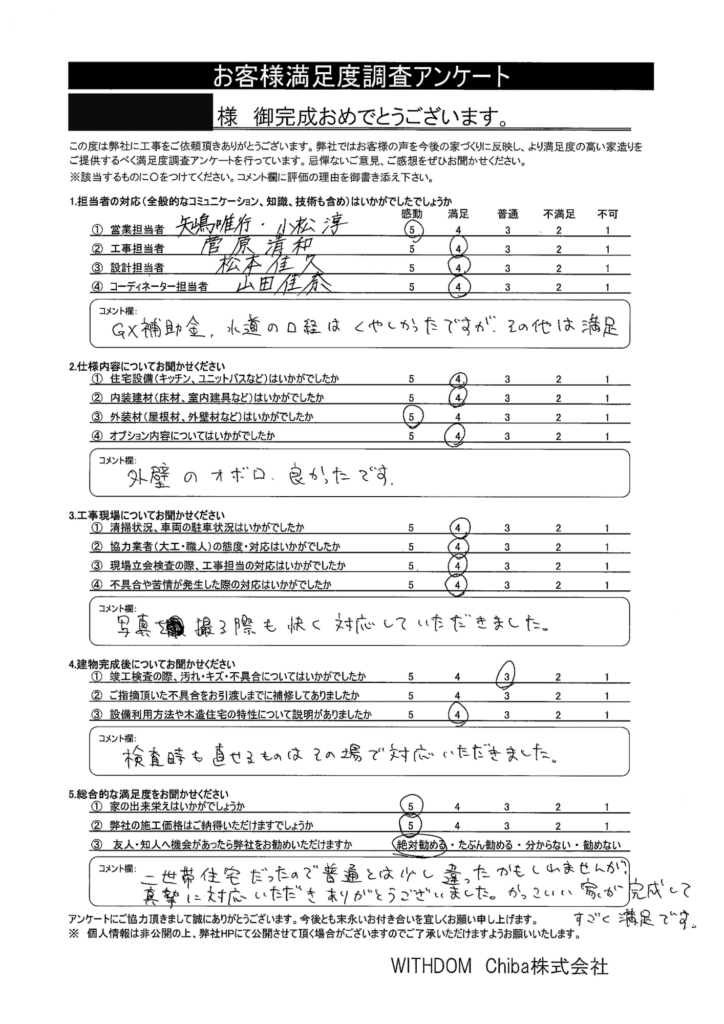 お客様満足度調査アンケート
様 御完成おめでとうございます。
この度は弊社に工事をご依頼頂きありがとうございます。弊社ではお客様の声を今後の家づくりに反映し、より満足度の高い家造りを
ご提供するべく満足度調査アンケートを行っています。忌憚ないご意見、ご感想をぜひお聞かせください。
※該当するものに〇をつけてください。コメント欄に評価の理由を御書き添え下さい。
1.担当者の対応(全般的なコミュニケーション、知識、技術も含め)はいかがでしたでしょうか
感動 満足 普通 不満足 不可
① 営業担当者 矢嶋唯行・小松淳 5 4 3 2 1
② 工事担当者 菅原清和 5 4 3 2 1
③ 設計担当者 松本佳久 5 4 3 2 1
④ コーディネーター担当者 山田佳奈 5 4 3 2 1
コメント欄:
GX補助金、水道の口経は くやしかったですが、その他は満足
2.仕様内容についてお聞かせください
① 住宅設備(キッチン、ユニットバスなど)はいかがでしたか 5 4 3 2 1
② 内装建材(床材、室内建具など)はいかがでしたか 5 4 3 2 1
③ 外装材(屋根材、外壁材など)はいかがでしたか 5 4 3 2 1
④ オプション内容についてはいかがでしたか 5 4 3 2 1
コメント欄:
外壁のオボロ、良かったです.
3.工事現場についてお聞かせください
① 清掃状況、車両の駐車状況はいかがでしたか 5 4 3 2 1
② 協力業者(大工・職人)の態度・対応はいかがでしたか 5 4 3 2 1
③ 現場立会検査の際、工事担当の対応はいかがでしたか 5 4 3 2 1
④ 不具合や苦情が発生した際の対応はいかがでしたか 5 4 3 2 1
コメント欄:
写真を 撮る際も快く対応していただきました。
4.建物完成後についてお聞かせください
① 竣工検査の際、汚れ・キズ・不具合についてはいかがでしたか 5 4 3 2 1
② ご指摘頂いた不具合をお引渡しまでに補修してありましたか 5 4 3 2 1
③ 設備利用方法や木造住宅の特性について説明がありましたか 5 4 3 2 1
コメント欄:
検査時も直せるものはその場で対応いただきました。
5.総合的な満足度をお聞かせください
① 家の出来栄えはいかがでしょうか 5 4 3 2 1
② 弊社の施工価格はご納得いただけますでしょうか 5 4 3 2 1
③ 友人・知人へ機会があったら弊社をお勧めいただけますか 絶対勧める・たぶん勧める・分からない・勧めない
コメント欄:
二世帯住宅だったので普通とは少し違ったかもしれませんが、
真摯に対応いただきありがとうございました。かっこいい家が完成して
すごく満足です。
アンケートにご協力頂きまして誠にありがとうございます。今後とも末永いお付き合いを宜しくお願い申し上げます。
※ 個人情報は非公開の上、弊社HPにて公開させて頂く場合がございますのでご了承いただけますようお願いいたします。
WITHDOM Chiba株式会社